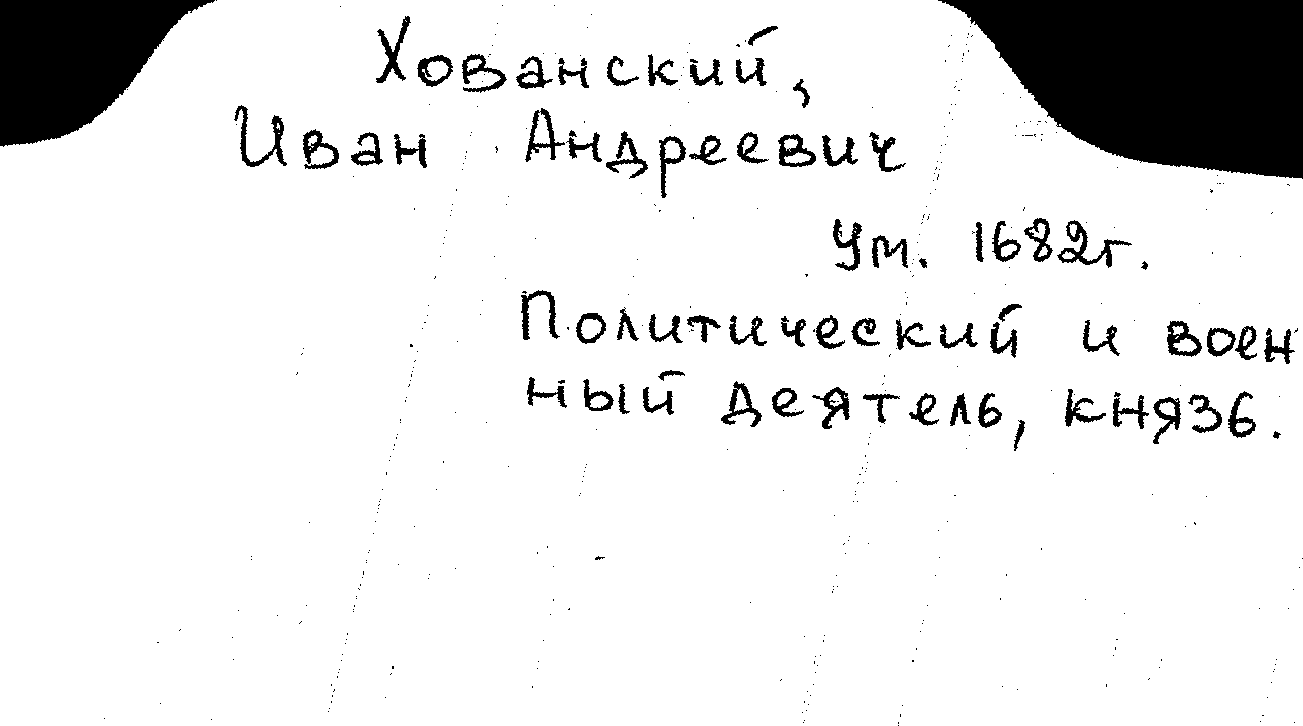 Хованский,
Иван Андреевич
Ум. 1682г.
Политический и воен
ный деятель, князь.